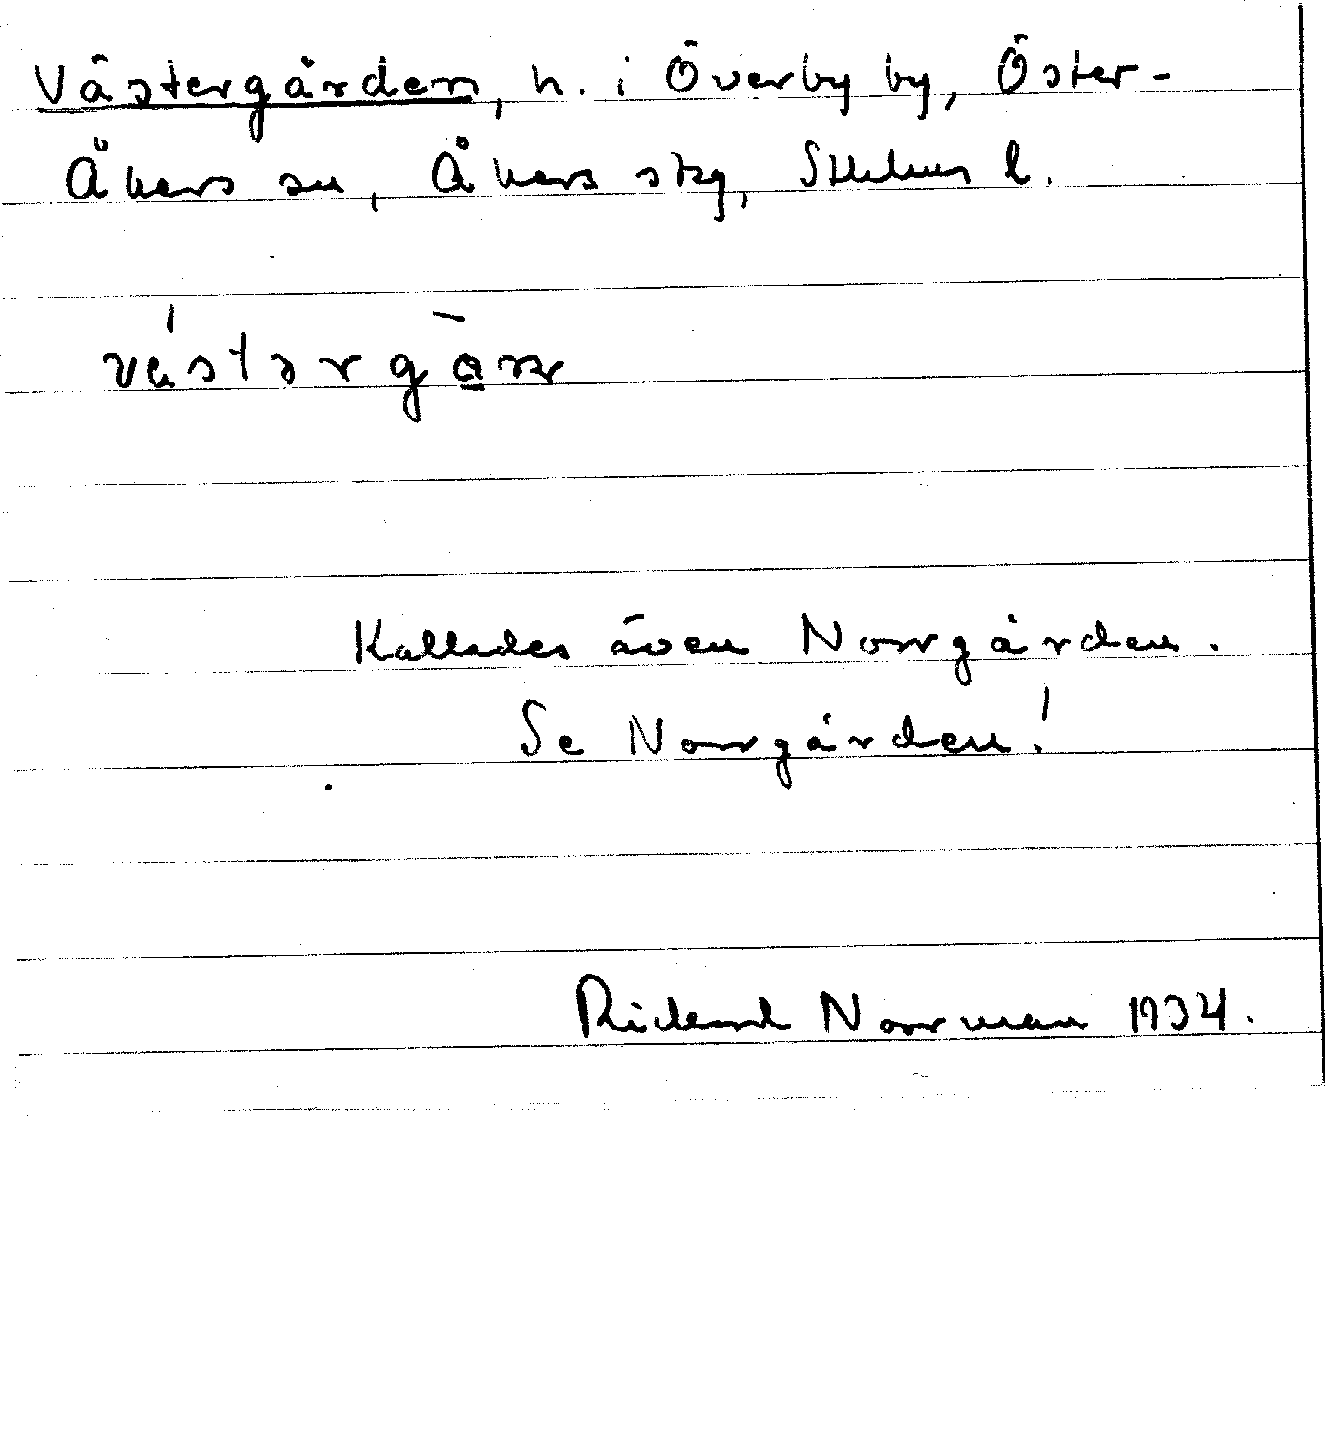 Västergården, h. i Överby by, Öster-
Åkers sn, Åkers skg, Sthlms l.
Kallades även Norrgården.
Se Norrgården!
Rickard Norrman 1934.